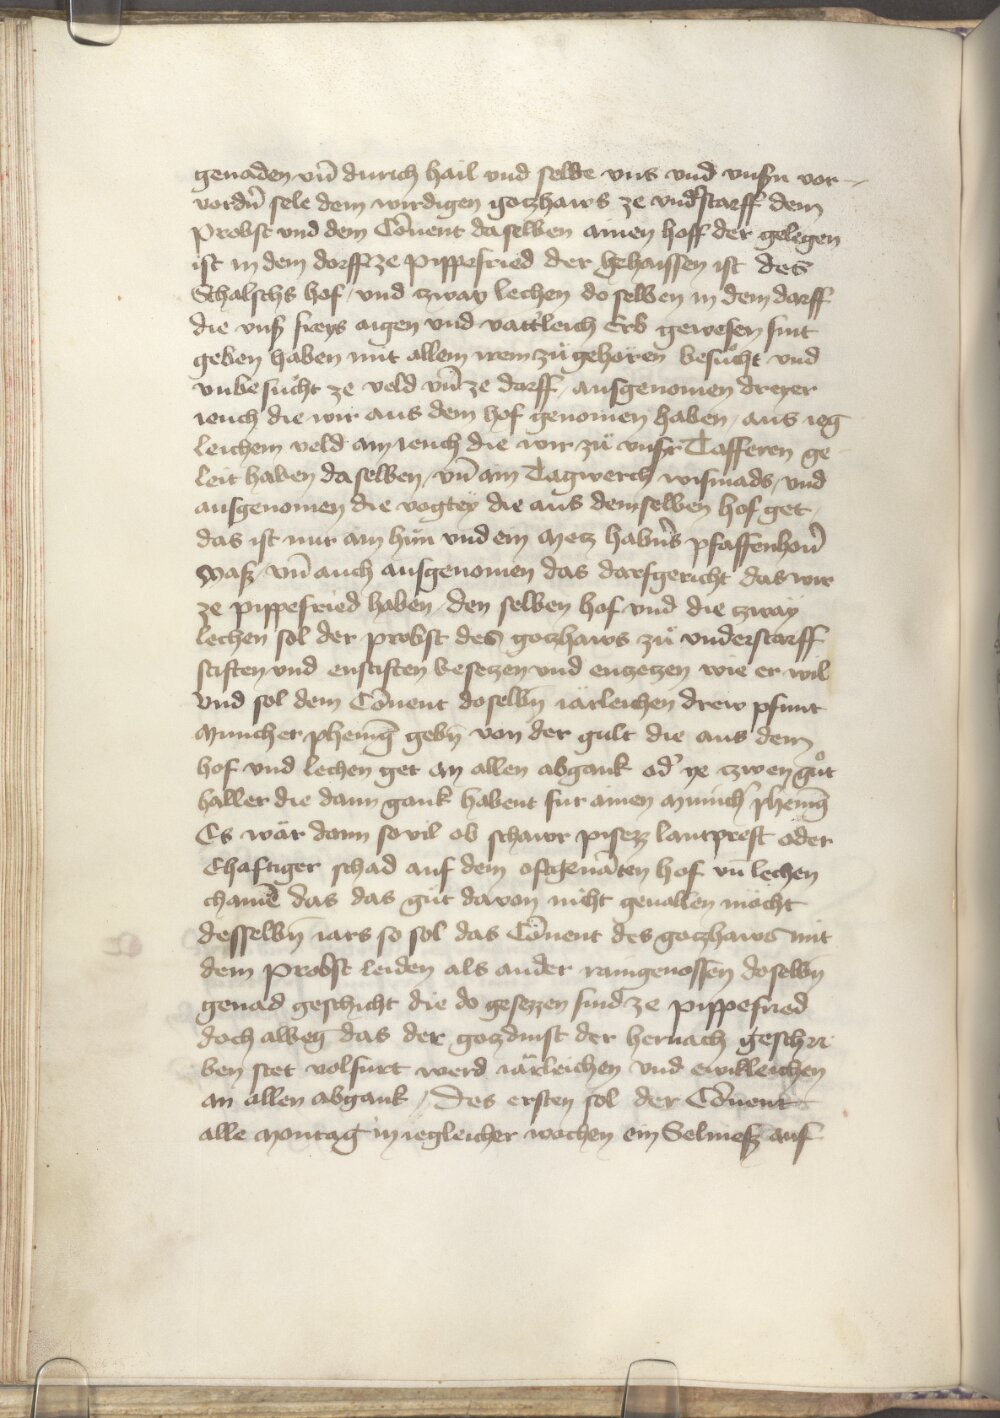 genaden vn̄ durich hail vnd selde vns vnd vnsern vor-
vordn̄ sele dem wirdigen gotzhaws ze vnderstarff dem
Probst vnd dem Cōuent daselben ainen hoff der gelegen
ist in dem dorff ze pippefried der gehaissen ist des
Schalschs hof / vnd zway lechen do selben in dem darff
die vnser freys aigen vnd vatterleich Erb gewesen sint
geben haben mit allem irem zů gehören besůcht vnd
vnbesůcht ze veld vn̄ ze dorff / ausgenomen dreyer
ieuch die wir aus dem hof genomen haben / aus ieg
leichem veld ain ieuch die wir zů vnser Tafferen ge
leit haben daselben / vn̄ ain Tagwerch wismads / vnd
ausgenomen die vogtey die aus demselben hof get /
das ist nur ain hůn vnd ein Metz haberns pfaffenhouer
Mass / vn̄ auch ausgenomen das dorfgericht das wir
ze pippefried haben / den selben hof vnd die zway
lechen sol der probst des gotzhaws zů vnderstarff
stiften vnd enstiften besetzen vnd entzetzen wie er wil
Vnd sol dem Cōuent doselbn̄ iärleichen drew pfunt
Muncher phenīg gebn̄ von der gult die aus dem
hof vnd lechen get an allen abgank od' ye zwen gůt
haller die dann gank habent fur ainen Munich' phenīg
Es wär dann so vil ob schawr pisetz lantprest oder
Ehaftiger schad auf dem oftgenāten hof vn̄ lechen
chamē das das gůt davon nicht geuallen möcht
desselbn̄ iars so sol das Cōuent des gotzhaws mit
dem Probst leiden als ander raingenossen doselbn̄
genad geschicht die do gesezzen sind ze pippefried
doch alweg das der gotzdinst der hernach geschri
ben stet volfurt werd iärleichen vnd ewikleichen
an allen abgank / Des ersten sol der Cōuent
alle Montag in iegleicher wochen ein Selmess auf